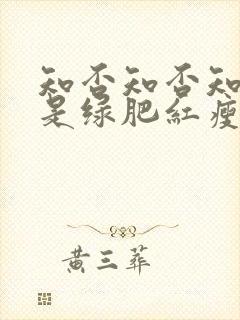 知否知否知
是绿肥红瘦
黄三葬